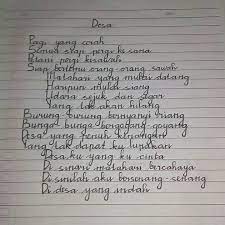 Desa
Pagi yang cerah
Semua siap pergi ke sana
Petani pergi kesawah
Siap bertemu orang-orang sawah
Matahari yang mulai datang
Haripun mulai siang
Udara sejuk dan segar
Yang tak akan hilang
Burung burung bernyanyi riang
Bunga bunga bergoyang goyang
Desa yang penuh kenangan
Yang tak dapat ku lupakan
Desa ku yang ku cinta
Di sinari matahari bercahaya
Disinilah aku bersenang senang
Di desa yang indah